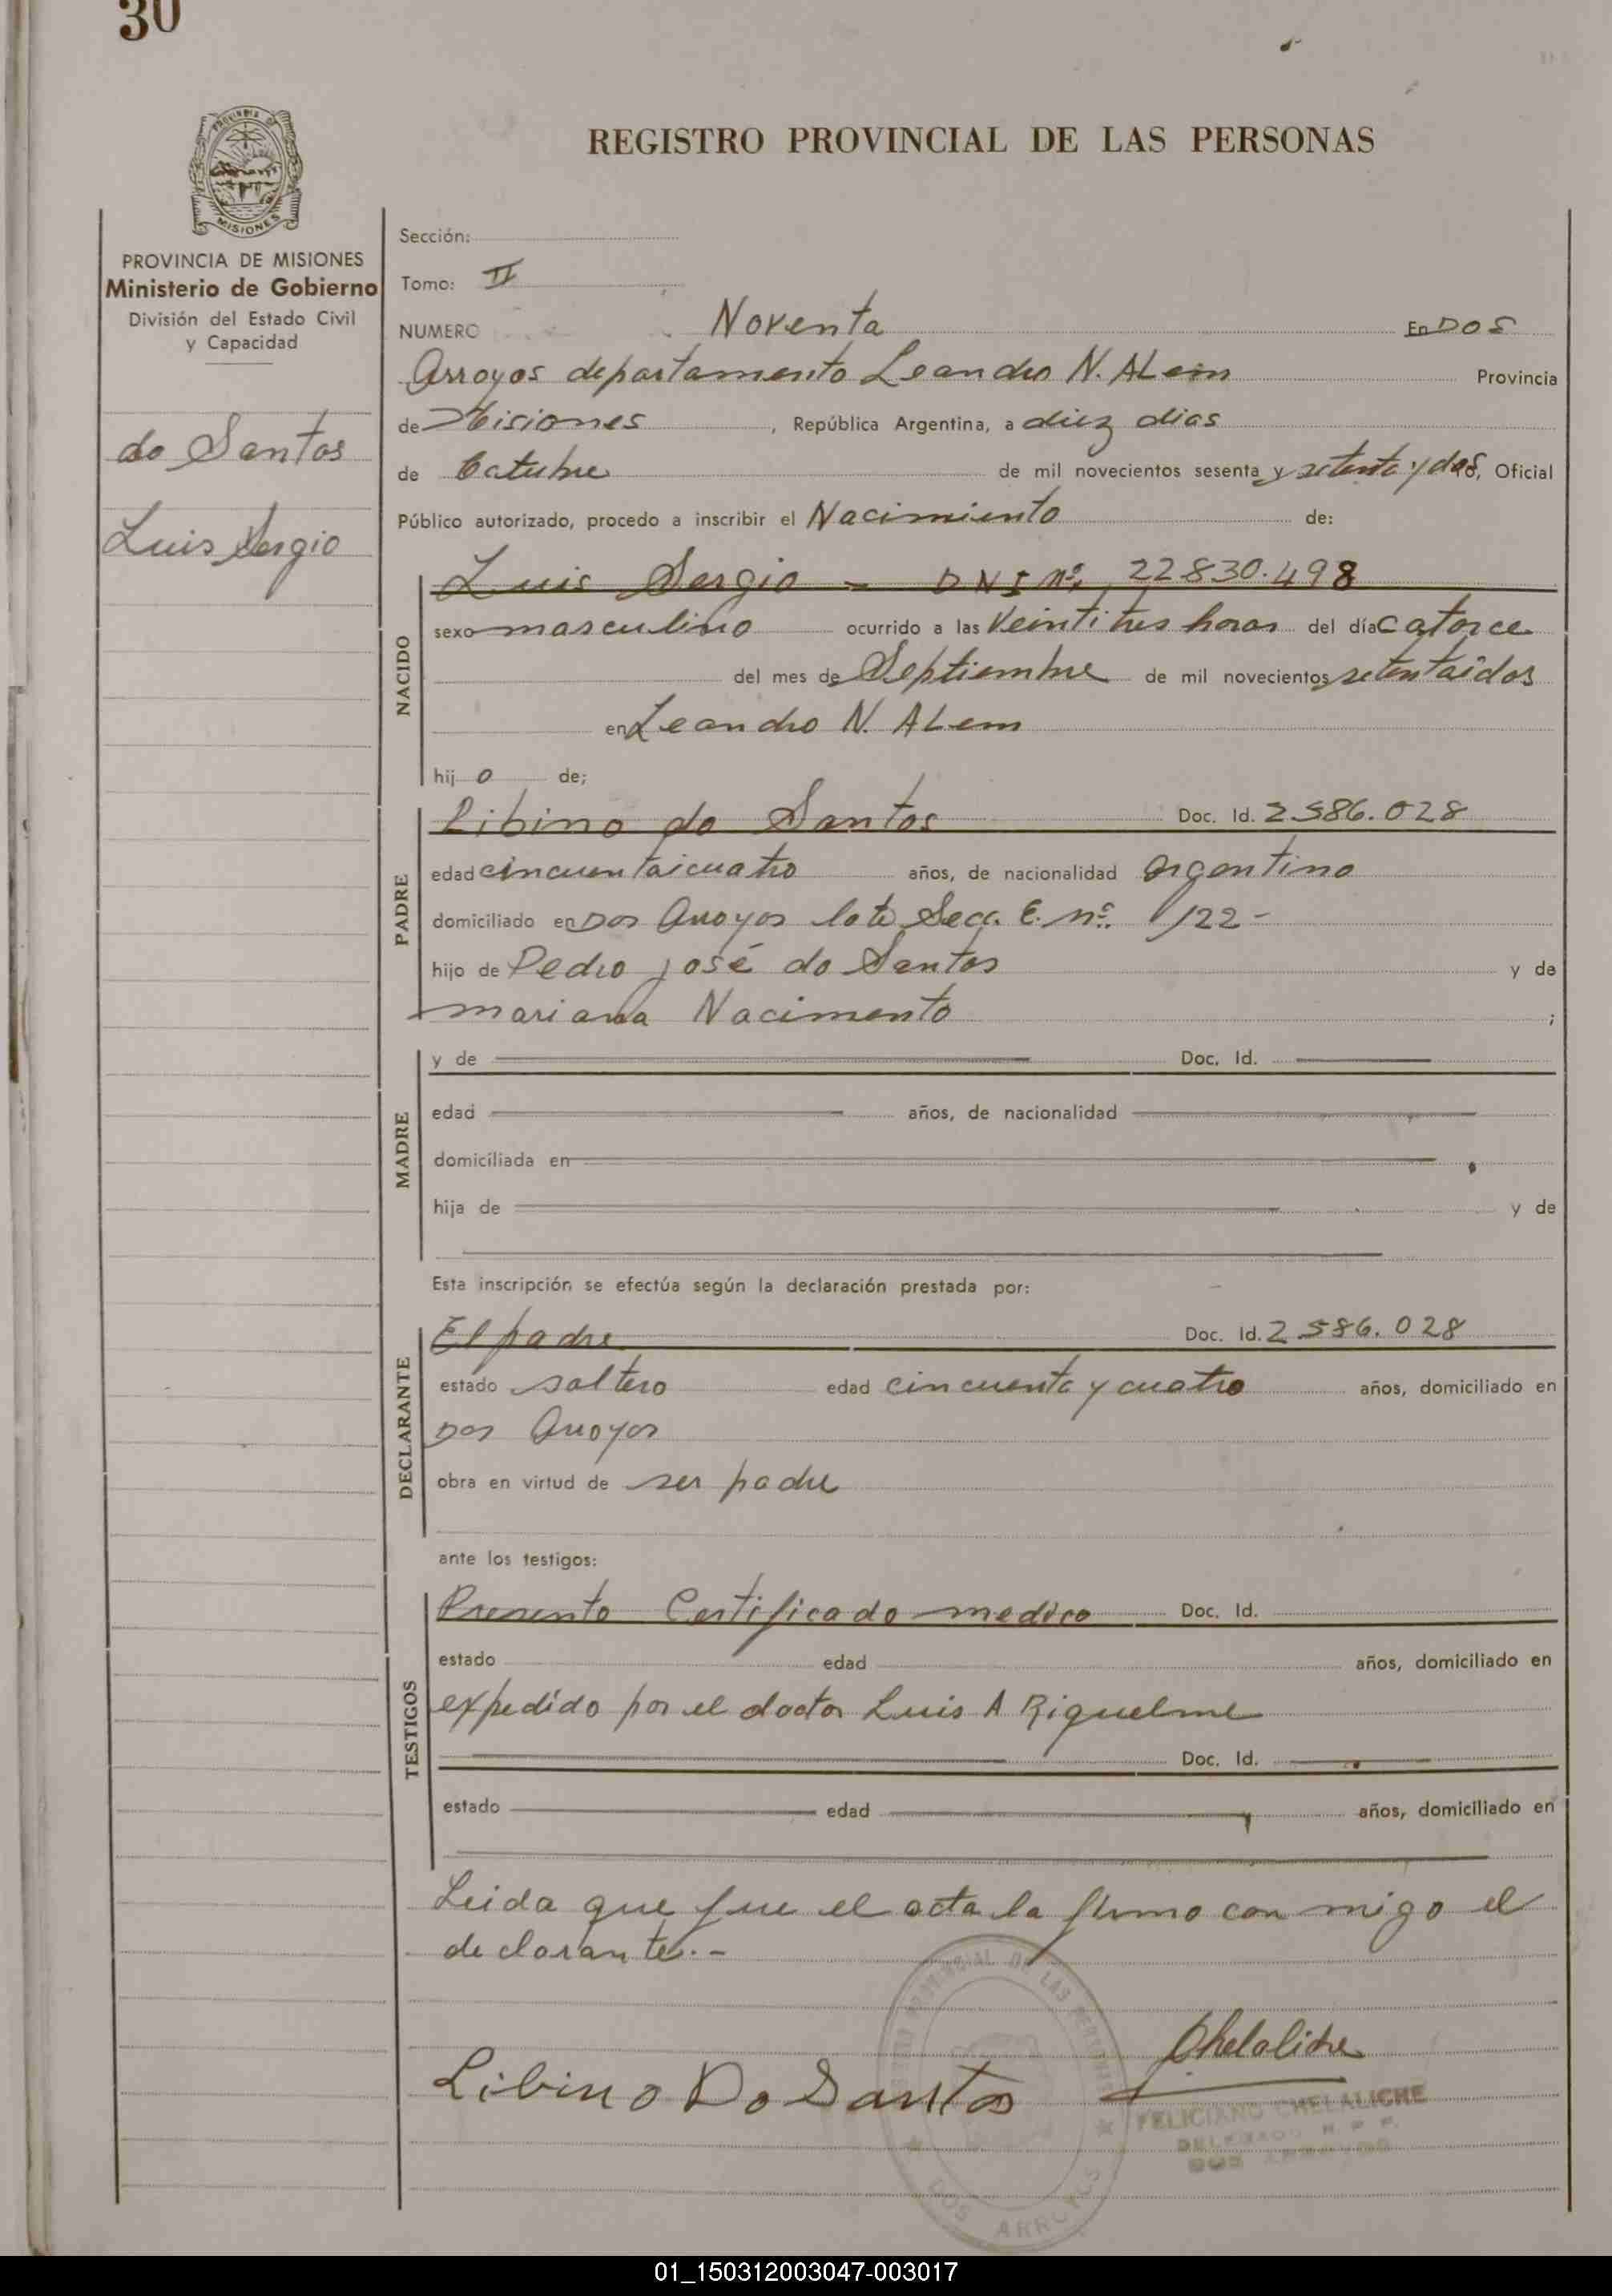 30
REGISTRO PROVINCIAL DE LAS PERSONAS
PROVINCIA DE MISIONES
Ministerio de Gobierno
División del Estado Civil
y Capacidad
do Santos
Luis Sergio
Sección:
Tomo: II
NUMERO Noventa En DOS
Arroyos departamento Leandro N. ALem Provincia
de Misiones, República Argentina, a diez dias
de Octubre de mil novecientos sesenta y setenta y dos, Oficial
Público autorizado, procedo a inscribir el Nacimiento de:
NACIDO
Luis Sergio - DNI Nº. 22830.498
sexo masculino ocurrido a las Veintitres horas del día catorce
del mes de Septiembre de mil novecientos setentaidos
en Leandro N. ALem
hijo de;
PADRE
Libino do Santos Doc. Id. 2.586.028
edad cincuentaicuatro años, de nacionalidad argentino
domiciliado en Dos Arroyos lote Secc. E. nº. 122-
hijo de Pedro josé do Santos y de
mariana Nacimento ;
MADRE
y de Doc. Id.
edad años, de nacionalidad
domiciliada en
hija de y de
Esta inscripción se efectúa según la declaración prestada por:
DECLARANTE
El padre Doc. Id. 2 586.028
estado soltero edad cincuenta y cuatro años, domiciliado en
Dos Arroyos
obra en virtud de ser padre
ante los testigos:
TESTIGOS
Presento Certificado medico Doc. Id.
estado edad años, domiciliado en
expedido por el doctor Luis A Riquelme
Doc. Id.
estado edad años, domiciliado en
Leida que fue el acta la firmo con migo el
declarante.-
Libino Do Santos
Chelaliche
FELICIANO CHELALICHE
DELEGADO R. P. P.
DOS ARROYOS
01_150312003047-003017